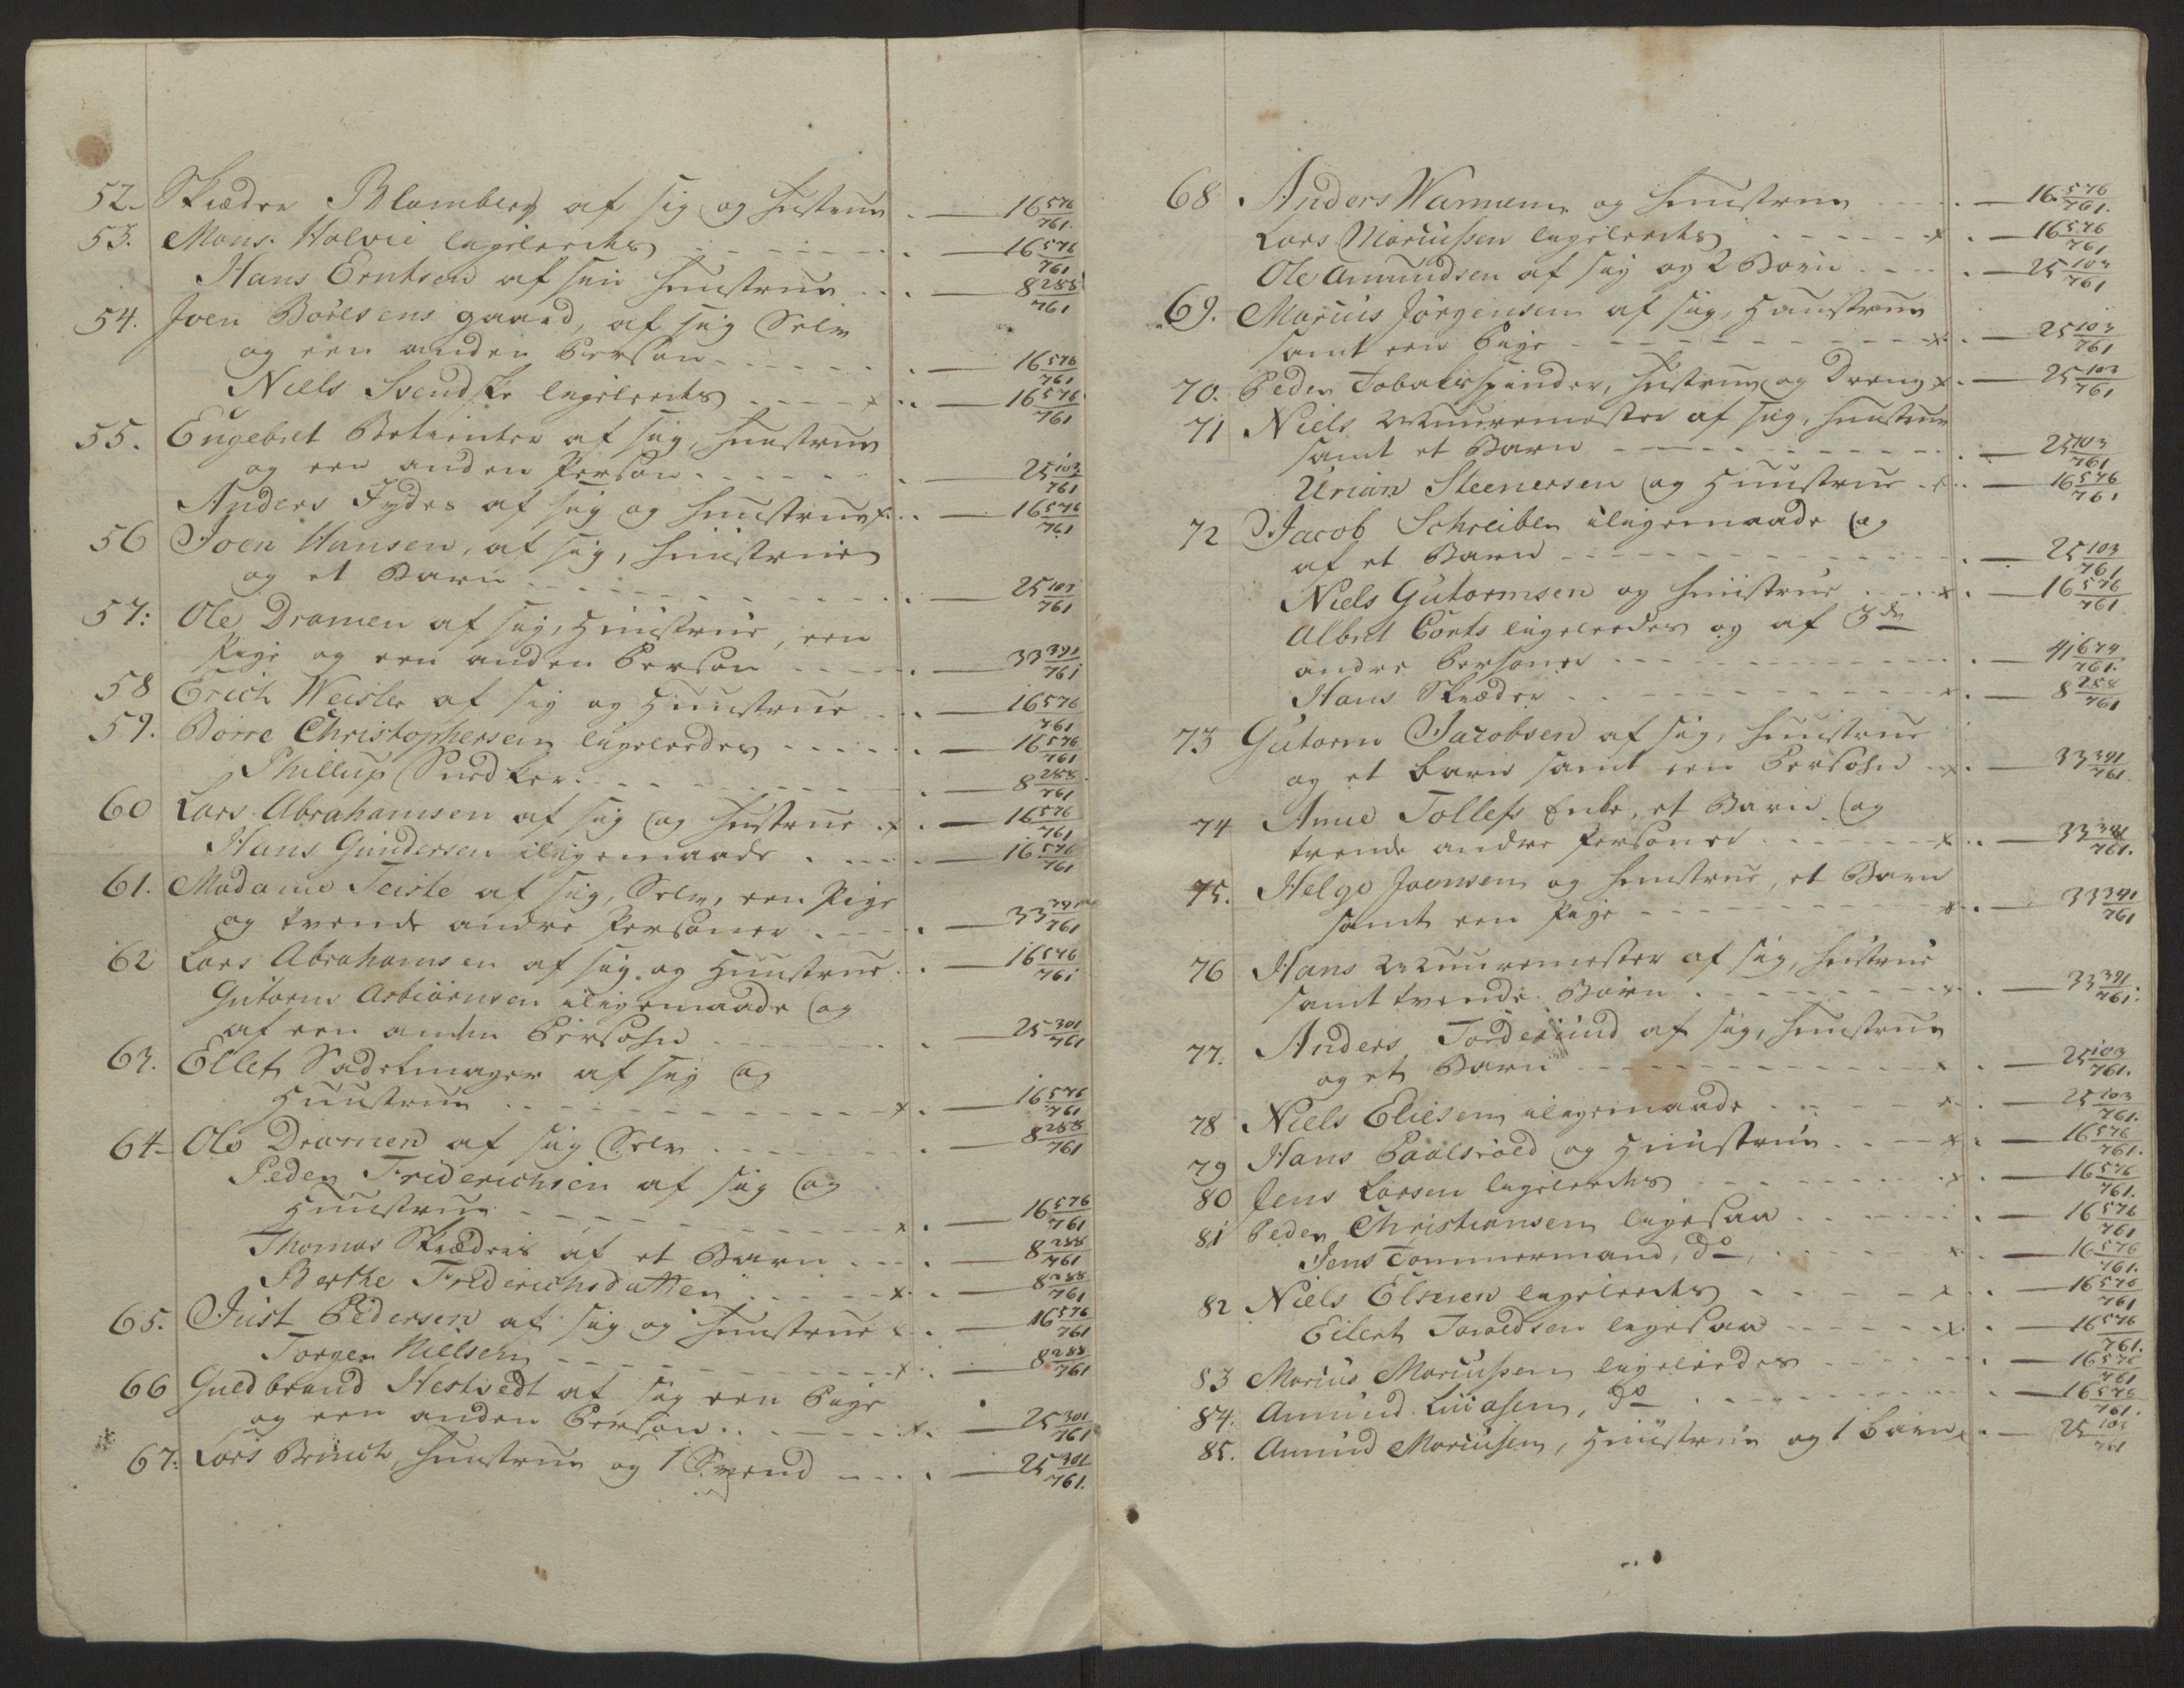 52. Skræder Blomberg af sig og hustrue . — 16 576/761.
53. Mons. Holvie ligeleedes . — 16 576/761
Hans Erntsen af sin huustrue . — 8 288/761
54. Joen Börlsens gaard, af sig Selv
og een anden Person . — 16 576/761
Niels Svendske ligeleedes x . — 16 576/761
55. Engebret Betienter af sig, huustrue
og een anden Person . — 25 103/761
Anders Jydes af sig og huustrue x . — 16 576/761
56 Joen Hansen, af sig, huustrue
og et Barn . — 25 103/761
57: Ole Dramen af sig, Huustrue, een
Pige og een anden Person . — 33 391/761
58 Erich Weisler af sig og Huustrue . — 16 576/761
59. Börre Christophersen ligeleedes . — 16 576/761
Phillup Snedker . — 8 288/761
60 Lars Abrahamsen af sig og hustrue x . — 16 576/761
Hans Gundersen iligemaade . — 16 576/761
61. Madame Teiste af sig, Selv, een Pige
og trende andre Personer . — 33 391/761
62 Lars Abrahamsen af sig og Huustrue . — 16 576/761
Gutorm Asbiörnsen iligemaade og
af een anden Persohn . — 25 301/761
63. Ellef Sadelmager af sig og
Huustrue x . — 16 576/761
64. Ole Dramen af sig Selv . — 8 288/761
Peder Friderichsen af sig og
Huustrue x . — 16 576/761
Thomas Skræders af et Barn . — 8 288/761
Berthe Friderichsdatter x . — 8 288/761
65. Just Pedersen af sig og huustrue x . — 16 576/761
Torger Nielsen x . — 8 288/761
66 Guldbrand Hestvedt af sig een Pige
og een anden Person x . — 25 301/761
67. Lars Brinch, huustrue og 1 Svend . — 25 301/761.
68 Anders Wamem og huustrue . — 16 576/761.
Lars Mariussen ligeleedes x . — 16 576/761
Ole Amundsen af sig og 2 Börn . — 25 103/761
69. Marius Jörgensen af sig, Huustrue
samt een Pige x . — 25 103/761
70. Peder Tobakspinder, hustrue og Dreng x . — 25 103/761
71 Niels Muuremester af sig, huustrue
samt et Barn . — 25 103/761
Urian Steenersen og Huustrue x . — 16 576/761
72 Jacob Schreiber iligemaade og
af et Barn . — 25 103/761
Niels Gutormsen og huustrue x . — 16 576/761.
Albret Corts ligeleedes og af 3de
andre Personer . — 41 679/761.
Hans Skræder x . — 8 288/761
73 Gutorm Jacobsen af sig, huustrue
og et barn samt een Persohn x . — 33 391/761.
74 Anne Tollefs Enke, et Barn og
trende andre Personer x . — 33 391/761.
75. Helge Joensen og huustrue, et Barn
samt een Pige x . — 33 391/761
76 Hans Muuremester af sig, hustrue
samt trende Börn x . — 33 391/761.
77. Anders af sig, huustrue
og et Barn x . — 25 103/761.
78 Niels Eliesen iligemaade x . — 25 103/761.
79 Hans Paalsröld og Huustrue x . — 16 576/761.
80 Jens Larsen ligeleedes x . — 16 576/761.
81 Peder Christiansen ligesaa . — 16 576/761
Jens Tommermand, do x . — 16 576/761.
82 Niels Elsenen ligeleedes x . — 16 576/761
Eilert Toroldsen ligesaa x . — 16 576/761.
83 Marius Mariussen ligeleedes . — 16 576/761
84. Amund Lucasen, do . — 16 576/761.
85. Amund Mariusen, Huustrue og 1 barn x . — 25 103/761